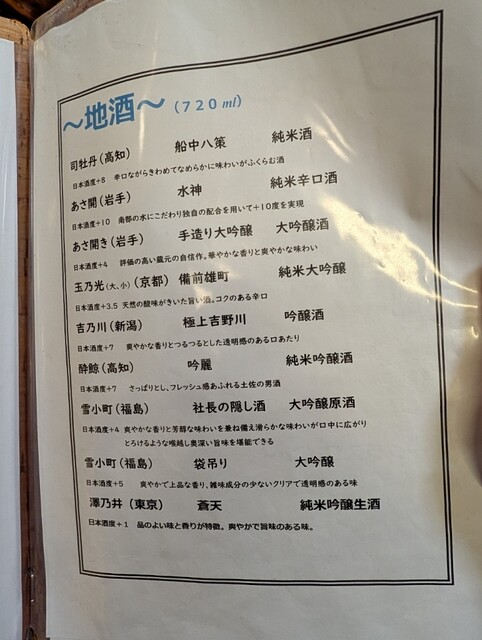 ～地酒～（７２０ml）
司牡丹（高知） 船中八策 純米酒
日本酒度＋8 辛口ながらきわめてなめらかに味わいがふくらむ酒
あさ開（岩手） 水神 純米辛口酒
日本酒度＋10 南部の水にこだわり独自の配合を用いて＋10度を実現
あさ開き（岩手） 手造り大吟醸 大吟醸酒
日本酒度＋4 評価の高い蔵元の自信作。華やかな香りと爽やかな味わい
玉乃光（大、小）（京都） 備前雄町 純米大吟醸
日本酒度＋3.5 天然の酸味がきいた旨い酒。コクのある辛口
吉乃川（新潟） 極上吉野川 吟醸酒
日本酒度＋7 爽やかな香りとつるつるとした透明感のある口あたり
酔鯨（高知） 吟麗 純米吟醸酒
日本酒度＋7 さっぱりとし、フレッシュ感あふれる土佐の男酒
雪小町（福島） 社長の隠し酒 大吟醸原酒
日本酒度＋4 爽やかな香りと芳醇な味わいを兼ね備え滑らかな味わいが口中に広がり
とろけるような喉越し奥深い旨味を堪能できる
雪小町（福島） 袋吊り 大吟醸
日本酒度＋5 爽やかで上品な香り、雑味成分の少ないクリアで透明感のある味
澤乃井（東京） 蒼天 純米吟醸生酒
日本酒度＋１ 品のよい味と香りが特徴。爽やかで旨味のある味。